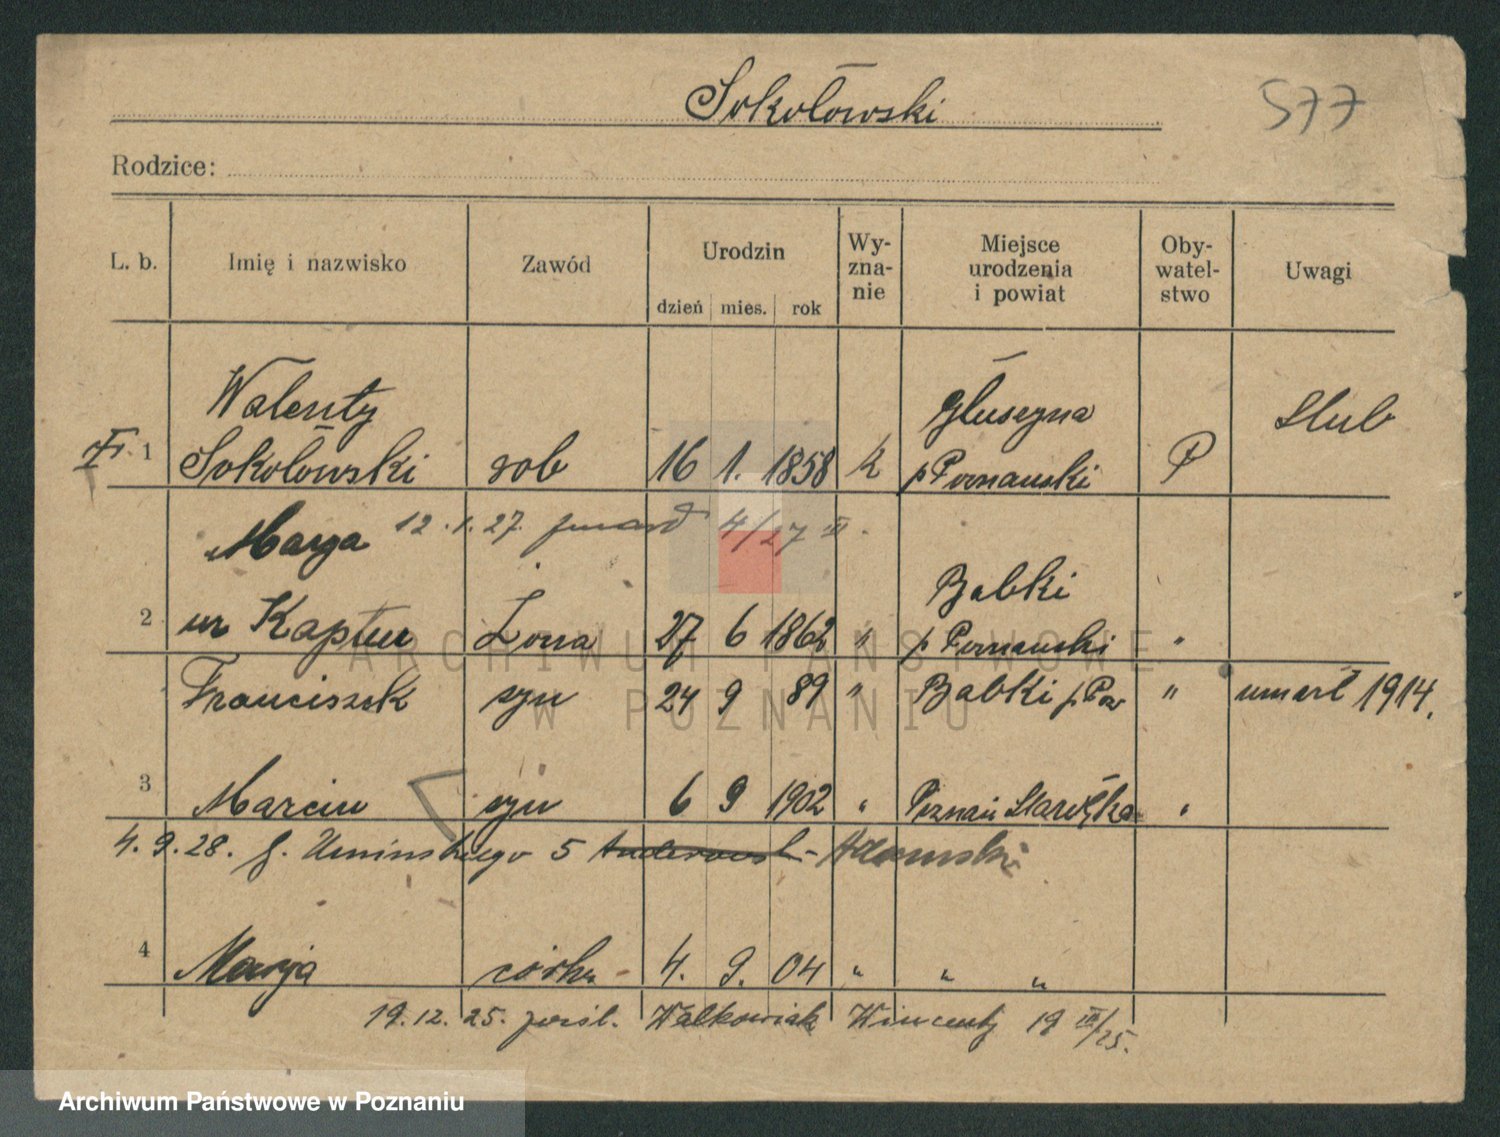 Sokołowski
577
Rodzice:
L. b. Imię i nazwisko Zawód Urodzin dzień mies. rok Wy-zna-nie Miejsce urodzenia i powiat Oby-watel-stwo Uwagi
Walenty Głuszyna Slub
1 Sokołowski rob 16 1. 1858 k p Poznański P
Marya 12.1.27. 4/27
Babki
2 ur Kaptur Żona 27 6 1862 " p Poznański "
Franciszek syn 24 9 89 " Babki p. Poz " umarł 1914.
3 Marcin syn 6 9 1902 " Poznań Starołęka "
4.9.28. f. Umińskiego 5
4 Marja córka 4. 9. 04 " " "
19.12.25. pośl. Walkowiak Wincenty 19 /25.
ARCHIWUM PAŃSTWOWE
W POZNANIU
Archiwum Państwowe w Poznaniu